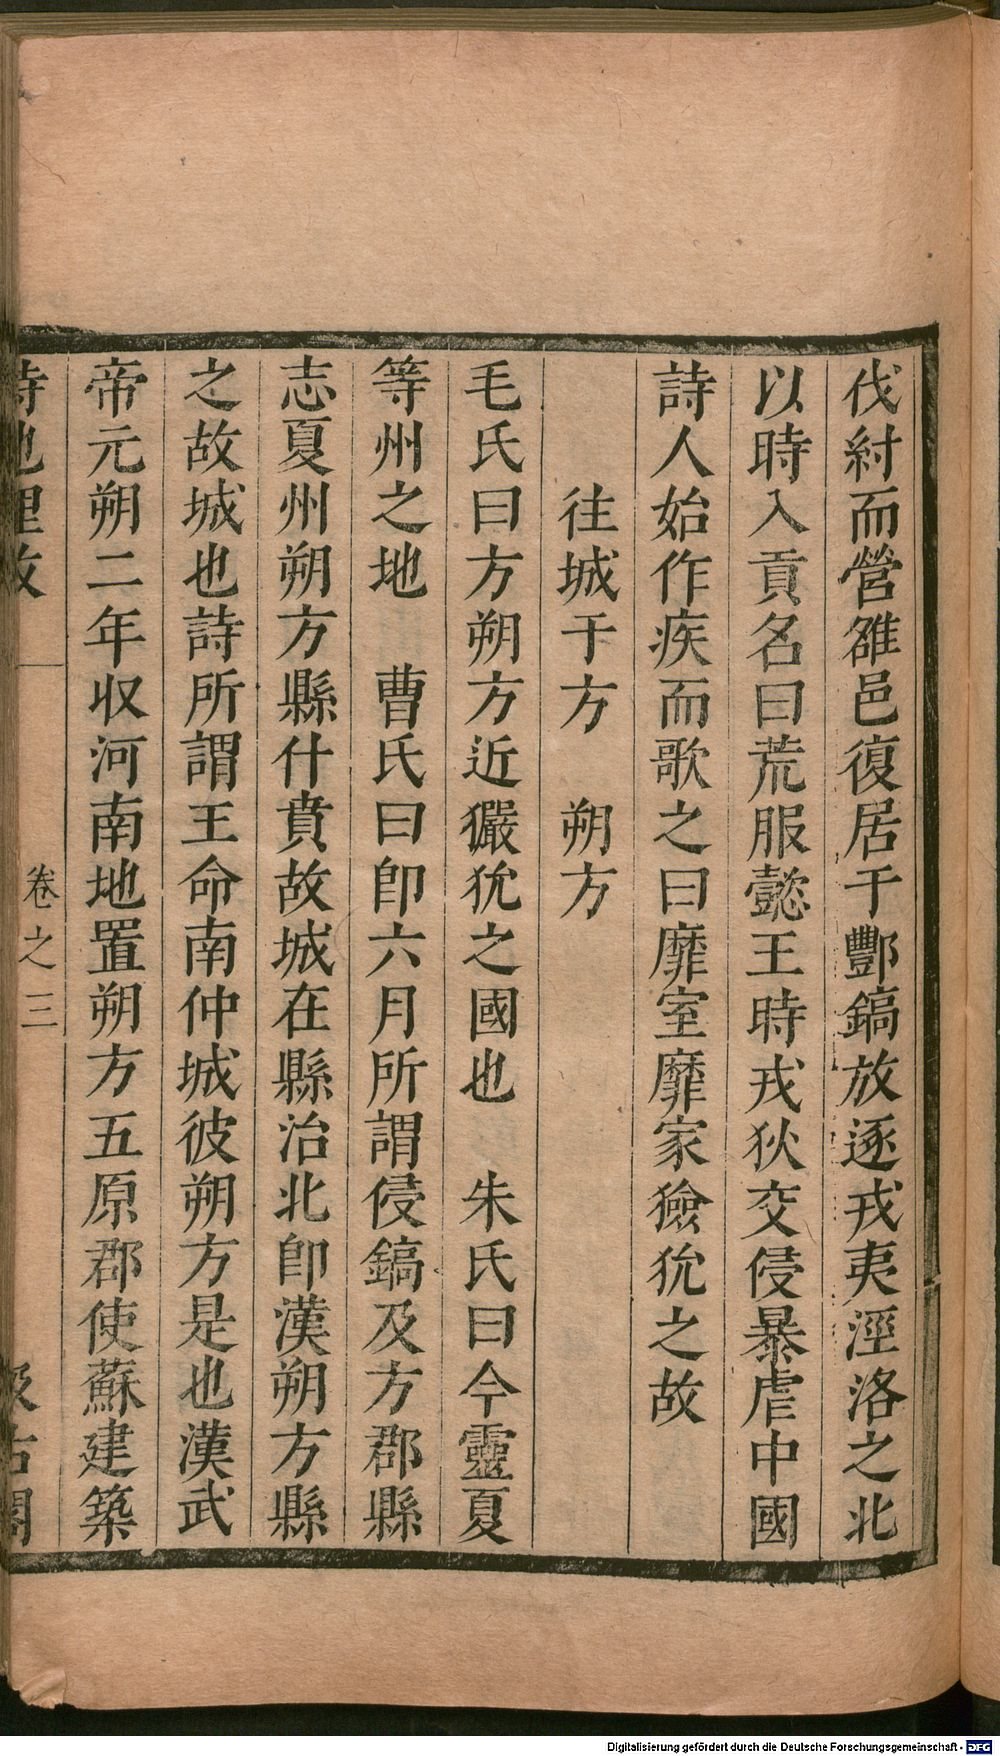 伐紂而營雒邑復居于酆鎬放逐戎夷涇洛之北
以時入貢名曰荒服懿王時戎狄交侵暴虐中國
詩人始作疾而歌之曰靡室靡家獫狁之故
往城于方　朔方
毛氏曰方朔方近玁狁之國也　朱氏曰今靈夏
等州之地　曹氏曰卽六月所謂侵鎬及方郡縣
志夏州朔方縣什賁故城在縣治北卽漢朔方縣
之故城也詩所謂王命南仲城彼朔方是也漢武
帝元朔二年收河南地置朔方五原郡使蘇建築
詩地理攷　卷之三　汲古閣
Digitalisierung gefördert durch die Deutsche Forschungsgemeinschaft - DFG